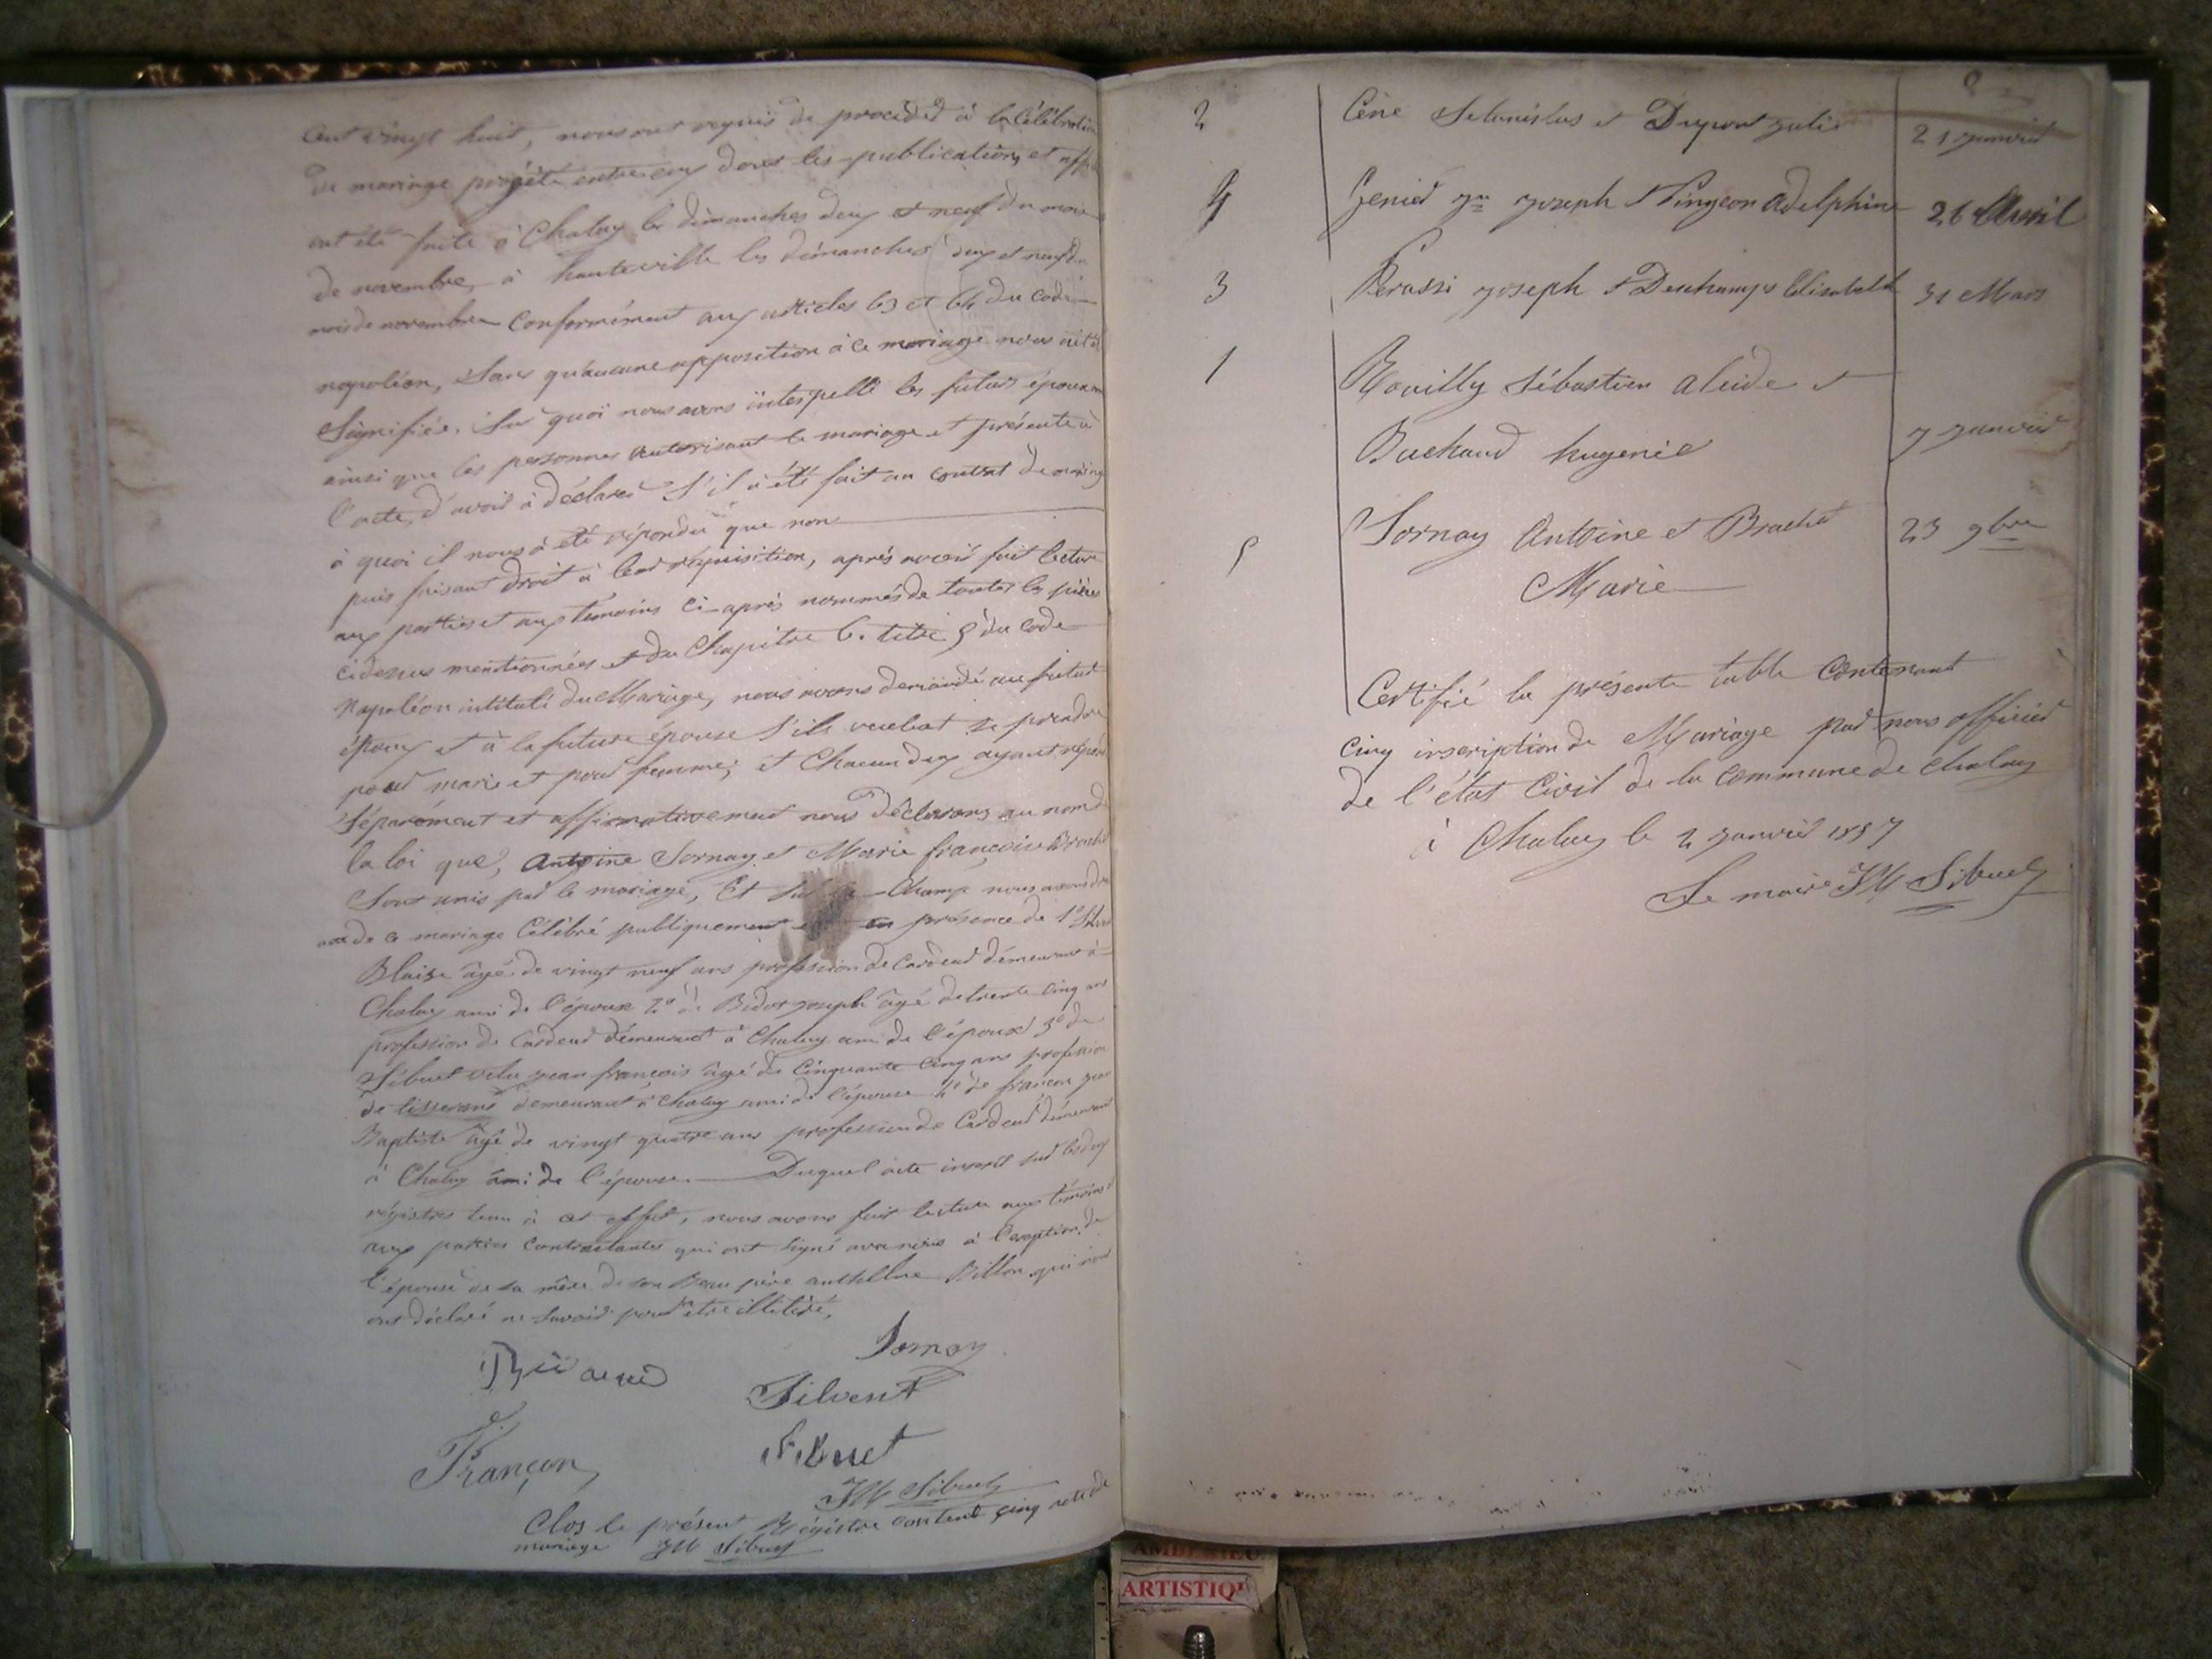 Cent vingt huit, nous ont requis de procéder à la Célébration
du mariage projété entre eux dont les publications et
ont été faite à Chaley les dimanches deux et neuf du mois
de novembre, à hauteville les dimanches deux et neuf du
mois de novembre Conformément aux articles 63 et 64 du Code
napoléon, Sans qu'aucune opposition à ce mariage nous ait été
Signifiée. Sur quoi nous avons interpellé les futurs époux
ainsi que les personnes autorisant le mariage et présente à
l'acte, d'avoir à déclarer S'il a été fait un contrat de mariage
à quoi il nous a été répondu que non
puis faisant droit à leur réquisition, après avoir fait lecture
aux parties et aux témoins ci-après nommés de toutes les pièces
cidessus mentionnées et du Chapitre 6. titre 5 du code
Napoléon intitulé du Mariage, nous avons demandé au futur
époux et à la future épouse S'ils veulent se prendre
pour mari et pour femme; et Chacun deux ayant répondu
Séparément et affirmativement nous déclarons au nom de
la loi que, Antoine Sornay et Marie françoise Brachet
Sont unis par le mariage, Et sur le Champ nous avons dressé
acte de ce mariage Célébré publiquement en présence de 1° Silvent
Blaise âgé de vingt neuf ans profession de Cardeur démeurant à
Chaley ami de l'époux 2° de Bidot joseph âgé de trente cinq ans
profession de Cardeur démeurant à Chaley ami de l'époux 3° de
Sibuet jean françois âgé de Cinquante Cinq ans profession
de tisserand demeurant à Chaley ami de l'épouse 4° de françon jean
Baptiste âgé de vingt quatre ans profession de Cardeur démeurant
à Chaley ami de l'épouse. Duquel acte inscrit sur les deux
régistres tenu à cet effet, nous avons fait lecture aux témoins
aux parties Contractantes qui ont signé avec nous à l'exeption de
l'épouse de sa mère de son Beau père anthelme Billon qui nous
ont déclaré ne Savoir pour être illitéré,
Sornay
Silvent
Françon
Sibuet
JM Sibuet
Clos le présent Régistre contenant cinq acte de
mariage JM Sibuet
2 Céne Stanislas et Dupont julie 21 janvier
4 Genier jn joseph et Pingeon adelphine 26 Avril
3 Perassi joseph et Deschamps Elisabeth 31 Mars
1 Rouilly Sébastien alcide et
Buchand Eugenie 7 janvier
5 Sornay Antoine et Brachet 23 9bre
Marie
Certifié la présente table Contenant
cinq inscription de Mariage par nous officier
de l'état Civil de la Commune de Chaley
à Chaley le 2 janvier 1857
Le maire JM Sibuet
ARTISTIQU